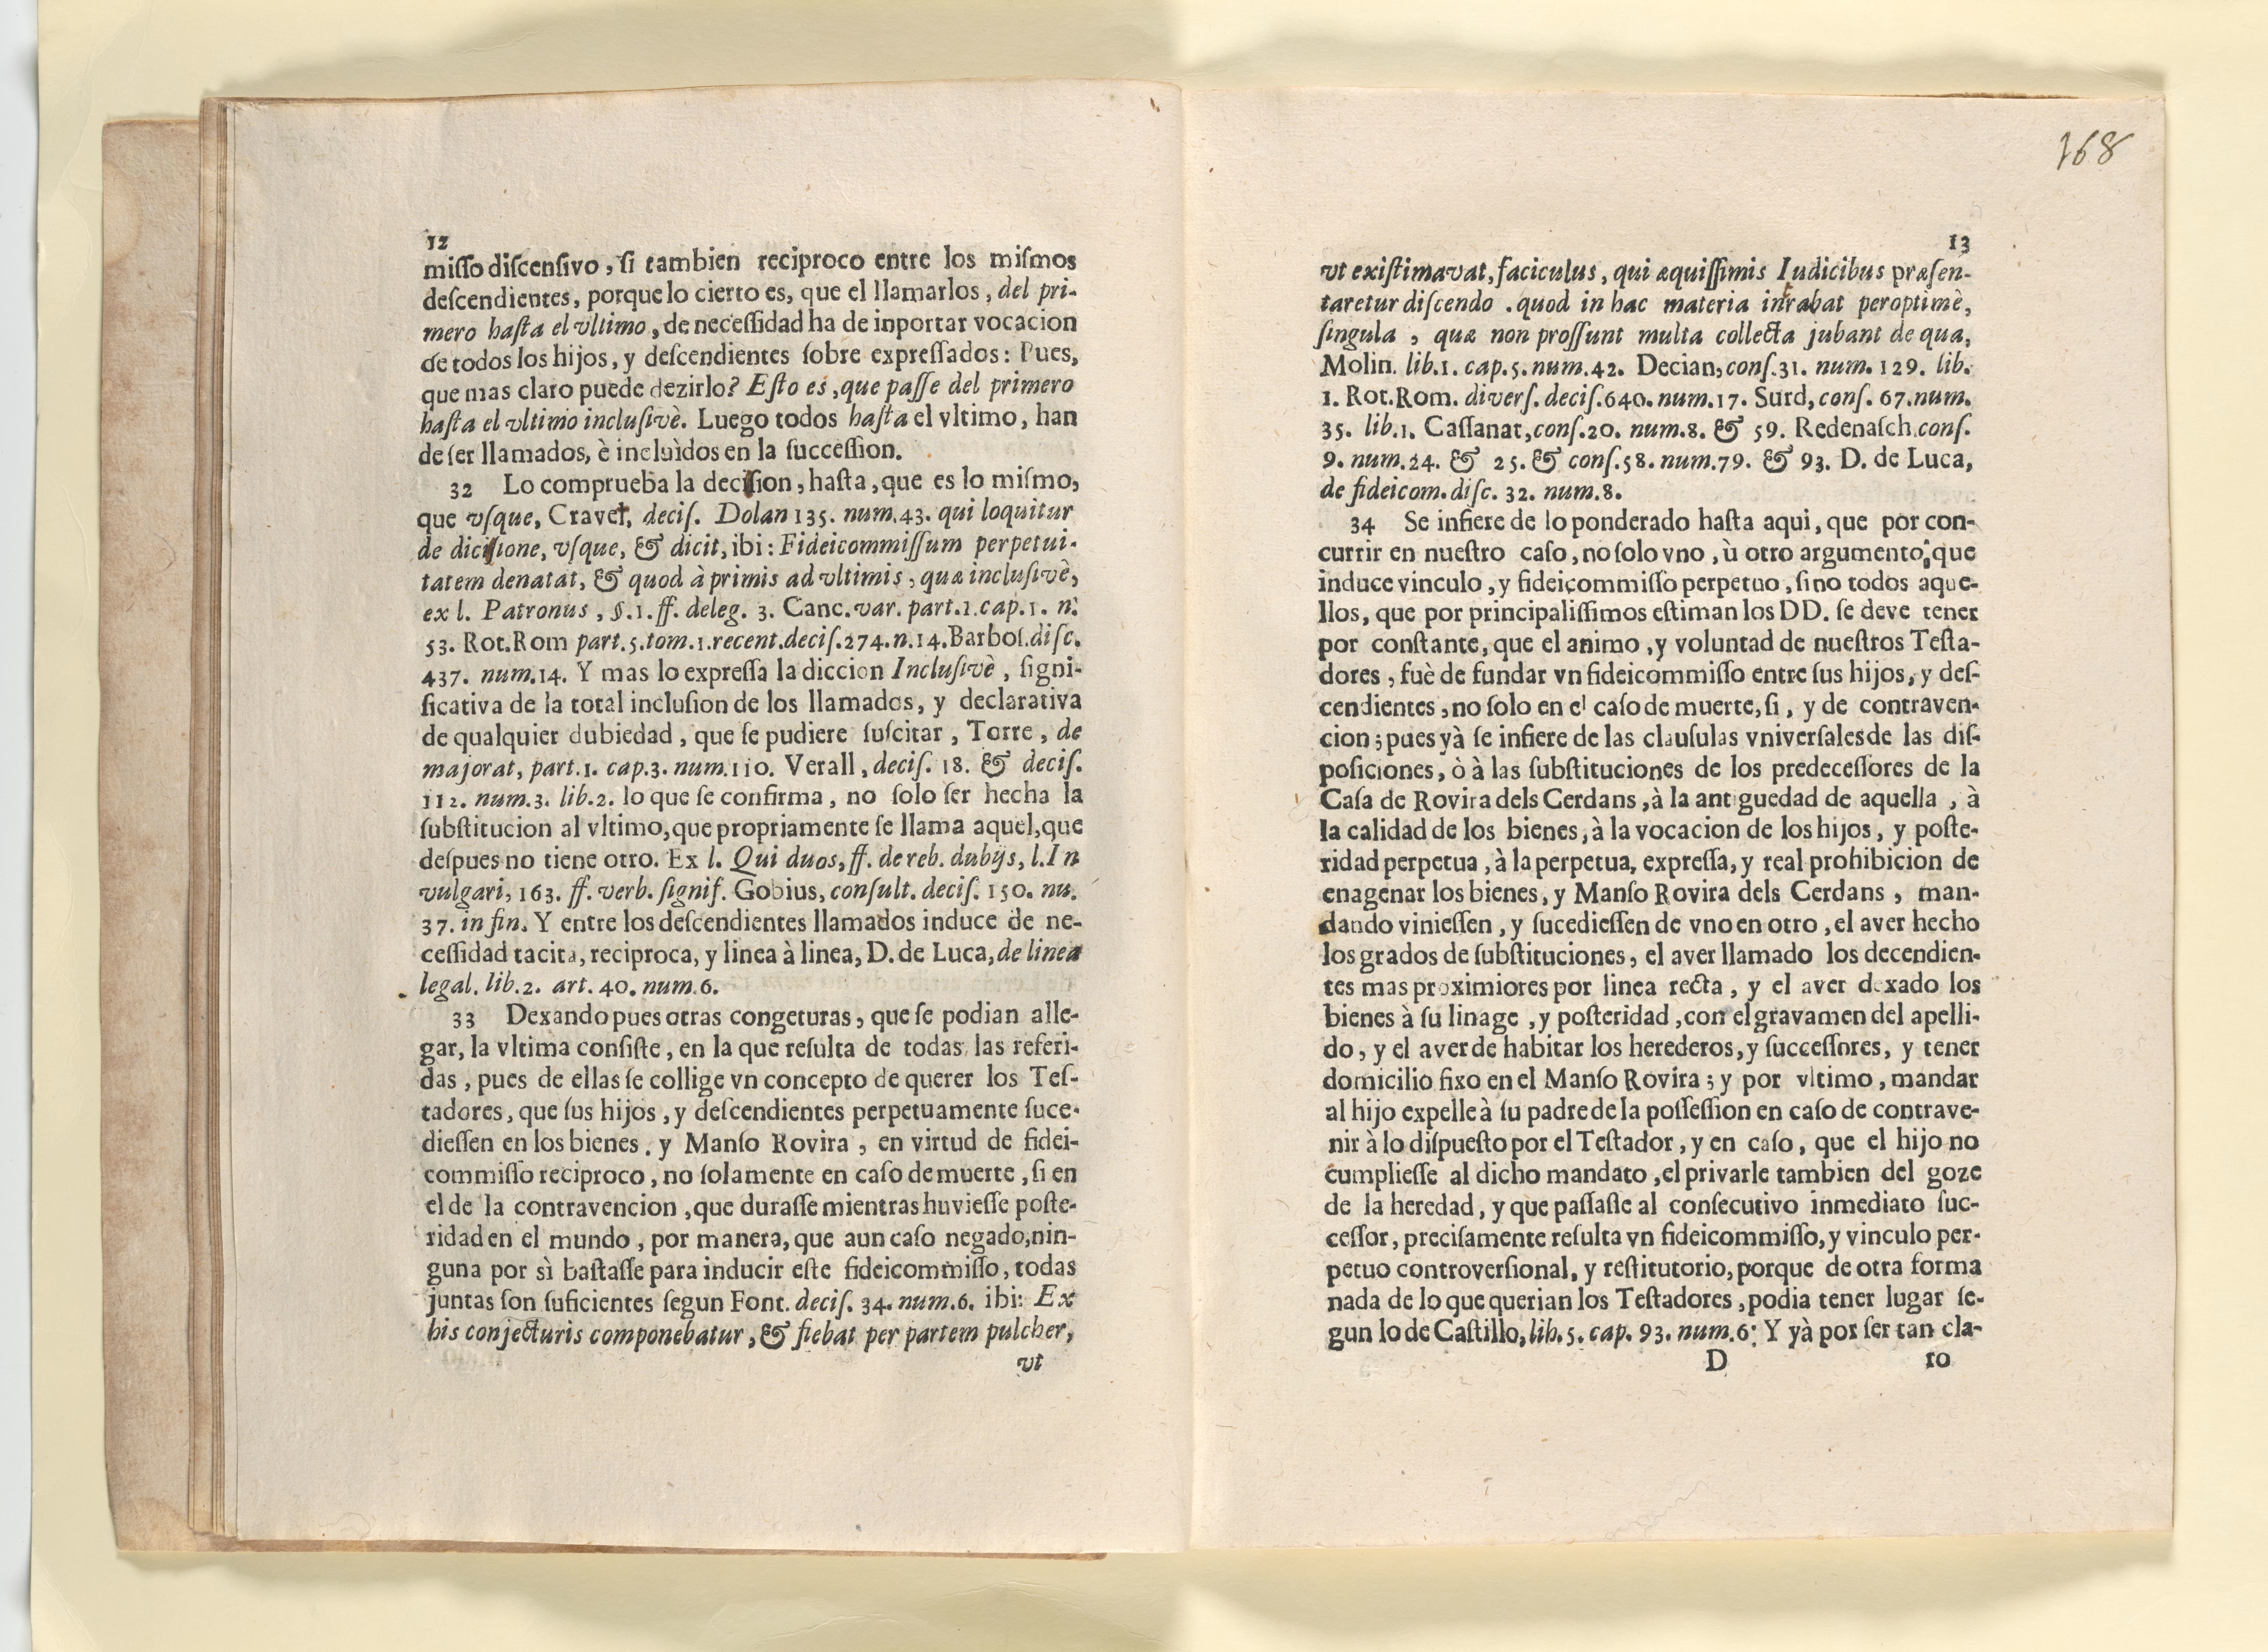 12
miſſo diſcenſivo, ſi tambien reciproco entre los miſmos
deſcendientes, porque lo cierto es, que el llamarlos, del pri-
mero haſta el vltimo, de neceſſidad ha de inportar vocacion
de todos los hijos, y deſcendientes ſobre expreſſados: Pues,
que mas claro puede dezirlo? Eſto es, que paſſe del primero
haſta el vltimo incluſivè. Luego todos haſta el vltimo, han
de ſer llamados, è incluìdos en la ſucceſſion.
32 Lo comprueba la deciſion, haſta, que es lo miſmo,
que vſque, Cravet, deciſ. Dolan 135. num.43. qui loquitur
de diciſione, vſque, & dicit, ibi: Fideicommiſſum perpetui-
tatem denatat, & quod à primis ad vltimis, quæ incluſivè,
ex l. Patronus, §.1. ff. deleg. 3. Canc. var. part.1.cap.1. n.
53. Rot.Rom part.5.tom.1.recent.deciſ.274.n.14.Barboſ.diſc.
437. num.14. Y mas lo expreſſa la diccion Incluſivè, ſigni-
ficativa de la total incluſion de los llamados, y declarativa
de qualquier dubiedad, que ſe pudiere ſuſcitar, Torre, de
majorat, part.1. cap.3. num.110. Verall, deciſ. 18. & deciſ.
112. num.3. lib.2. lo que ſe confirma, no ſolo ſer hecha la
ſubſtitucion al vltimo, que propriamente ſe llama aquel, que
deſpues no tiene otro. Ex l. Qui duos, ff. de reb. dubijs, l.In
vulgari, 163. ff. verb. ſignif. Gobius, conſult. deciſ. 150. nu.
37. in fin. Y entre los deſcendientes llamados induce de ne-
ceſſidad tacita, reciproca, y linea à linea, D. de Luca, de linea
legal. lib.2. art. 40. num.6.
33 Dexando pues otras congeturas, que ſe podian alle-
gar, la vltima conſiſte, en la que reſulta de todas las referi-
das, pues de ellas ſe collige vn concepto de querer los Teſ-
tadores, que ſus hijos, y deſcendientes perpetuamente ſuce-
dieſſen en los bienes. y Manſo Rovira, en virtud de fidei-
commiſſo reciproco, no ſolamente en caſo de muerte, ſi en
el de la contravencion, que duraſſe mientras huvieſſe poſte-
ridad en el mundo, por manera, que aun caſo negado, nin-
guna por sì baſtaſſe para inducir eſte fideicommiſſo, todas
juntas ſon ſuficientes ſegun Font. deciſ. 34. num.6. ibi: Ex
his conjecturis componebatur, & fiebat per partem pulcher,
vt
168
13
vt exiſtimavat, faciculus, qui æquiſſimis Iudicibus præſen-
taretur diſcendo . quod in hac materia intrabat peroptimè,
ſingula, quæ non proſſunt multa collecta jubant de qua,
Molin. lib.1. cap.5. num.42. Decian, conſ.31. num. 129. lib.
1. Rot.Rom. diverſ. deciſ.640. num.17. Surd, conſ. 67.num.
35. lib.1. Caſſanat, conſ.20. num.8. & 59. Redenaſch.conſ.
9. num.24. & 25. & conſ.58. num.79. & 93. D. de Luca,
de fideicom. diſc. 32. num.8.
34 Se infiere de lo ponderado haſta aqui, que por con-
currir en nueſtro caſo, no ſolo vno, ù otro argumento, que
induce vinculo, y fideicommiſſo perpetuo, ſino todos aque-
llos, que por principaliſſimos eſtiman los DD. ſe deve tener
por conſtante, que el animo, y voluntad de nueſtros Teſta-
dores, fuè de fundar vn fideicommiſſo entre ſus hijos, y deſ-
cendientes, no ſolo en el caſo de muerte, ſi, y de contraven-
cion; pues yà ſe infiere de las clauſulas vniverſales de las diſ-
poſiciones, ò à las ſubſtituciones de los predeceſſores de la
Caſa de Rovira dels Cerdans, à la antiguedad de aquella, à
la calidad de los bienes, à la vocacion de los hijos, y poſte-
ridad perpetua, à la perpetua, expreſſa, y real prohibicion de
enagenar los bienes, y Manſo Rovira dels Cerdans, man-
dando vinieſſen, y ſucedieſſen de vno en otro, el aver hecho
los grados de ſubſtituciones, el aver llamado los decendien-
tes mas proximiores por linea recta, y el aver dexado los
bienes à ſu linage, y poſteridad, con el gravamen del apelli-
do, y el aver de habitar los herederos, y ſucceſſores, y tener
domicilio fixo en el Manſo Rovira; y por vltimo, mandar
al hijo expelle à ſu padre de la poſſeſſion en caſo de contrave-
nir à lo diſpueſto por el Teſtador, y en caſo, que el hijo no
cumplieſſe al dicho mandato, el privarle tambien del goze
de la heredad, y que paſſaſſe al conſecutivo inmediato ſuc-
ceſſor, preciſamente reſulta vn fideicommiſſo, y vinculo per-
petuo controverſional, y reſtitutorio, porque de otra forma
nada de lo que querian los Teſtadores, podia tener lugar ſe-
gun lo de Caſtillo, lib.5. cap. 93. num.6: Y yà por ſer tan cla-
D
ro